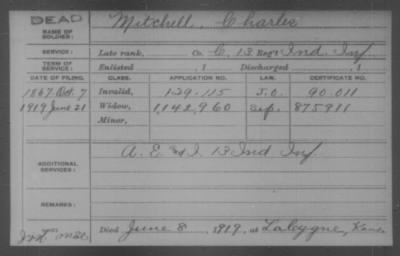 DEAD
NAME OF SOLDIER: Mitchell, Charles
SERVICE: Late rank, Co. C, 13 Reg't Ind. Inf
TERM OF SERVICE: Enlisted , 1 Discharged , 1
DATE OF FILING. CLASS. APPLICATION NO. LAW. CERTIFICATE NO.
1867 Oct. 7 Invalid, 139.115 90.011
1919 June 21 Widow, 1,142,960 875911
Minor,
ADDITIONAL SERVICES: A. E. & I. 13 Ind Inf
REMARKS:
Died June 8, 1919, at Lacygne, Kans